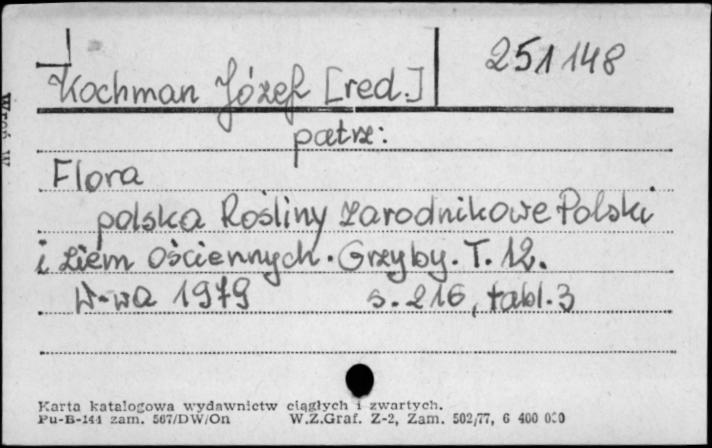 251148
Kochman Józef [red.]
patrz:
Flora
polska Rośliny zarodnikowe Polski
i ziem ościennych. Grzyby. T. 12.
W-wa 1979 s. 216, tabl. 3
Karta katalogowa wydawnictw ciągłych i zwartych.
Pu-B-144 zam. 567/DW/On W.Z.Graf. Z-2, Zam. 502/77, 6 400 000